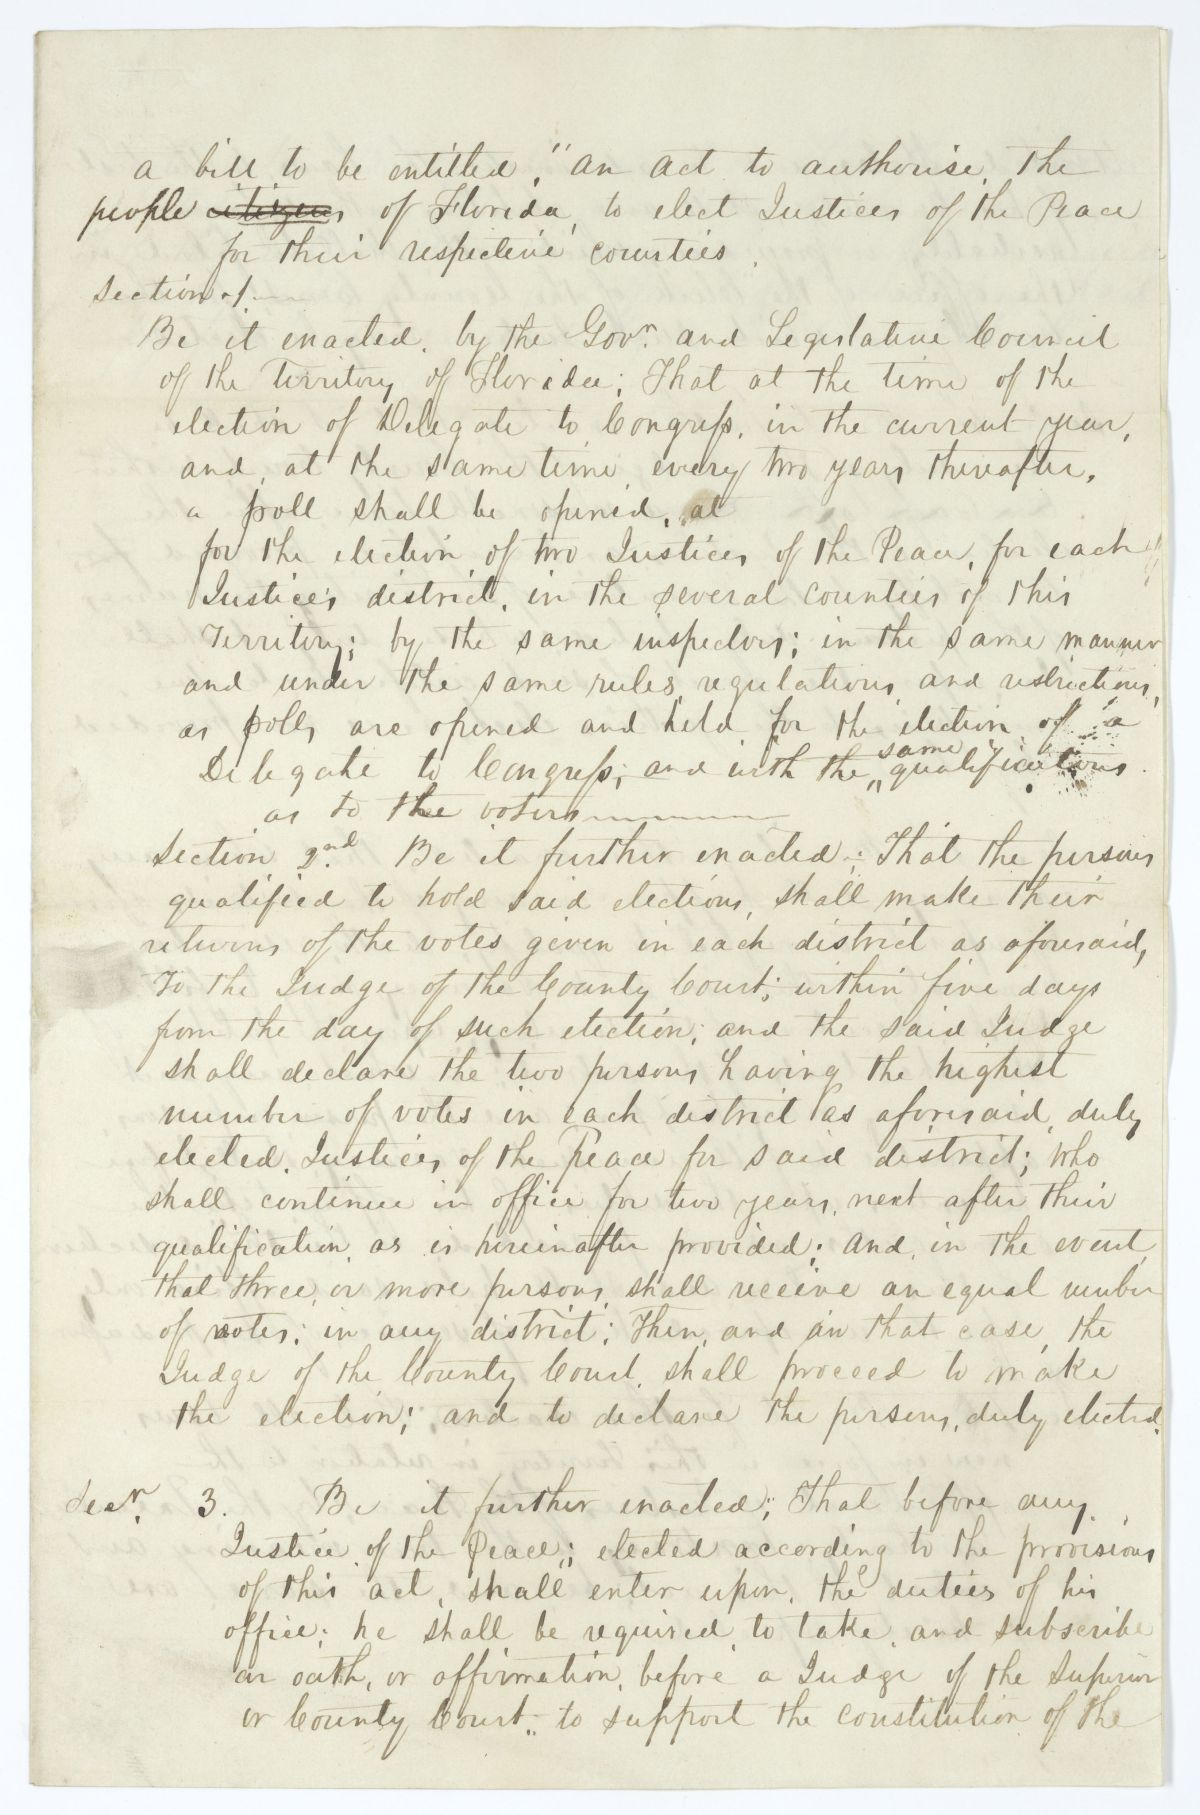 a bill to be entitled, "an act to authorise, the
people citizens of Florida, to elect Justices of the Peace
for their respective counties.
Section 1.
Be it enacted, by the Govr. and Legislative Council
of the Territory of Florida; That at the time of the
election of Delegate to Congress, in the current year,
and, at the same time, every two years thereafter,
a poll shall be opened, at
for the election, of two Justices of the Peace, for each
Justice's district, in the several counties of this
Territory; by the same inspectors; in the same manner
and under the same rules, regulations, and restrictions,
as polls are opened and held for the election of a
Delegate to Congress; and with the same qualifications
as to the voters
Section 2nd. Be it further enacted; That the persons
qualified to hold said elections, shall make their
returns of the votes given in each district as aforesaid,
To the Judge of the County Court; within five days
from the day of such election; and the said Judge
shall declare the two persons having the highest
number of votes in each district as aforesaid, duly
elected, Justices of the Peace for said district; who
shall continue in office for two years, next after their
qualification, as is hereinafter provided; and, in the event,
that three, or more persons, shall receive an equal number
of votes; in any district; Then, and in that case, the
Judge of the County Court, shall proceed to make
the election; and to declare the persons, duly elected.
Secn. 3. Be it further enacted; That before any
Justice of the Peace; elected according to the provisions
of this act, shall enter upon, the duties of his
office; he shall be required, to take, and subscribe
an oath, or affirmation, before a Judge of the Superior
or County Court, to support the constitution of the